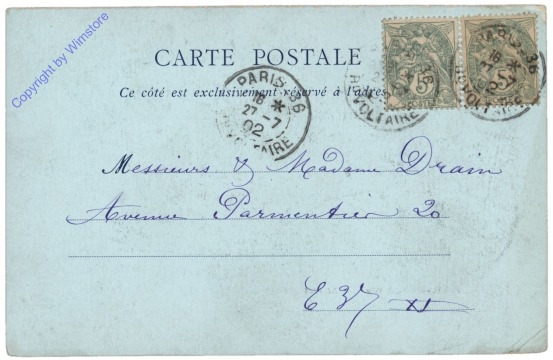 Copyright by Wimstore
CARTE POSTALE
Ce côté est exclusivement réservé à l'adresse
PARIS - 36
16 *
27 - 7
02
R. VOLTAIRE
5
POSTES
Messieurs & Madame Drain
Avenue Parmentier 20
E 37